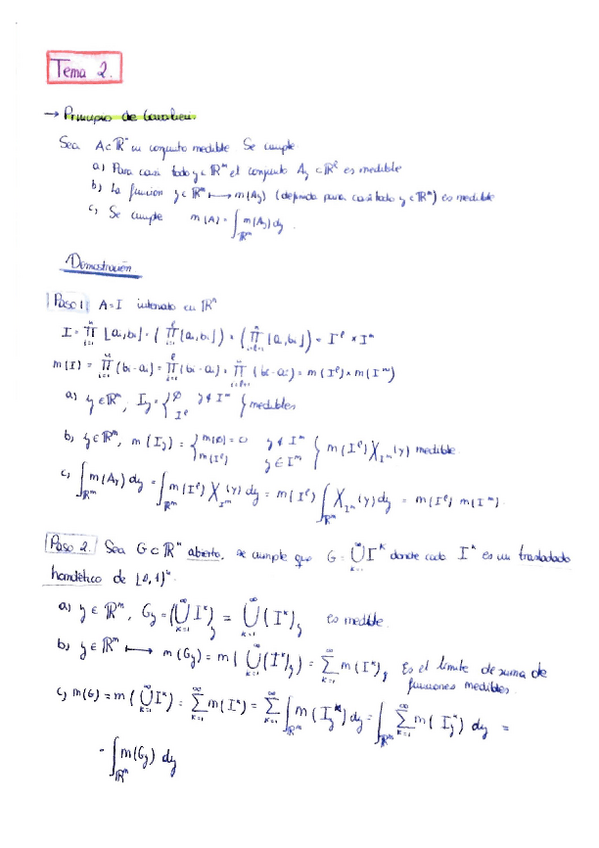 Tema 2.
→ Principio de Cavalieri.
Sea A⊂ℝⁿ un conjunto medible Se cumple
a) Para casi todo y∈ℝᵐ el conjunto A_y ⊂ℝˡ es medible
b) La función y∈ℝᵐ ⟼ m(A_y) (definida para casi todo y∈ℝᵐ) es medible
c) Se cumple m(A) = ∫_{ℝᵐ} m(A_y) dy.
Demostración
Paso 1) A=I intervalo en ℝⁿ
I = ∏_{i=1}^{n} [a_i, b_i) = (∏_{i=1}^{l} [a_i, b_i)) × (∏_{i=l+1}^{n} [a_i, b_i)) = Iˡ × Iᵐ
m(I) = ∏_{i=1}^{n} (b_i - a_i) = ∏_{i=1}^{l} (b_i - a_i) × ∏_{i=l+1}^{n} (b_i - a_i) = m(Iˡ) × m(Iᵐ)
a) y∈ℝᵐ, I_y = { ∅ y∉Iᵐ } medibles
Iˡ
b) y∈ℝᵐ, m(I_y) = { m(∅) = 0 y∉Iᵐ } m(Iˡ) χ_{Iᵐ}(y) medible.
m(Iˡ) y∈Iᵐ
c) ∫_{ℝᵐ} m(A_y) dy = ∫_{ℝᵐ} m(Iˡ) χ_{Iᵐ}(y) dy = m(Iˡ) ∫_{ℝᵐ} χ_{Iᵐ}(y) dy = m(Iˡ) m(Iᵐ).
Paso 2. Sea G⊂ℝⁿ abierto, se cumple que G = ⋃_{k=1}^{∞} Iᵏ donde cada Iᵏ es un trasladado
homotético de [0,1)ⁿ.
a) y∈ℝᵐ, G_y = (⋃_{k=1}^{∞} Iᵏ)_y = ⋃_{k=1}^{∞} (Iᵏ)_y es medible.
b) y∈ℝᵐ ⟼ m(G_y) = m(⋃_{k=1}^{∞} (Iᵏ)_y) = ∑_{k=1}^{∞} m(Iᵏ)_y Es el límite de suma de
funciones medibles.
c) m(G) = m(⋃_{k=1}^{∞} Iᵏ) = ∑_{k=1}^{∞} m(Iᵏ) = ∑_{k=1}^{∞} ∫_{ℝᵐ} m(I_yᵏ) dy = ∫_{ℝᵐ} ∑_{k=1}^{∞} m(I_yᵏ) dy =
= ∫_{ℝᵐ} m(G_y) dy